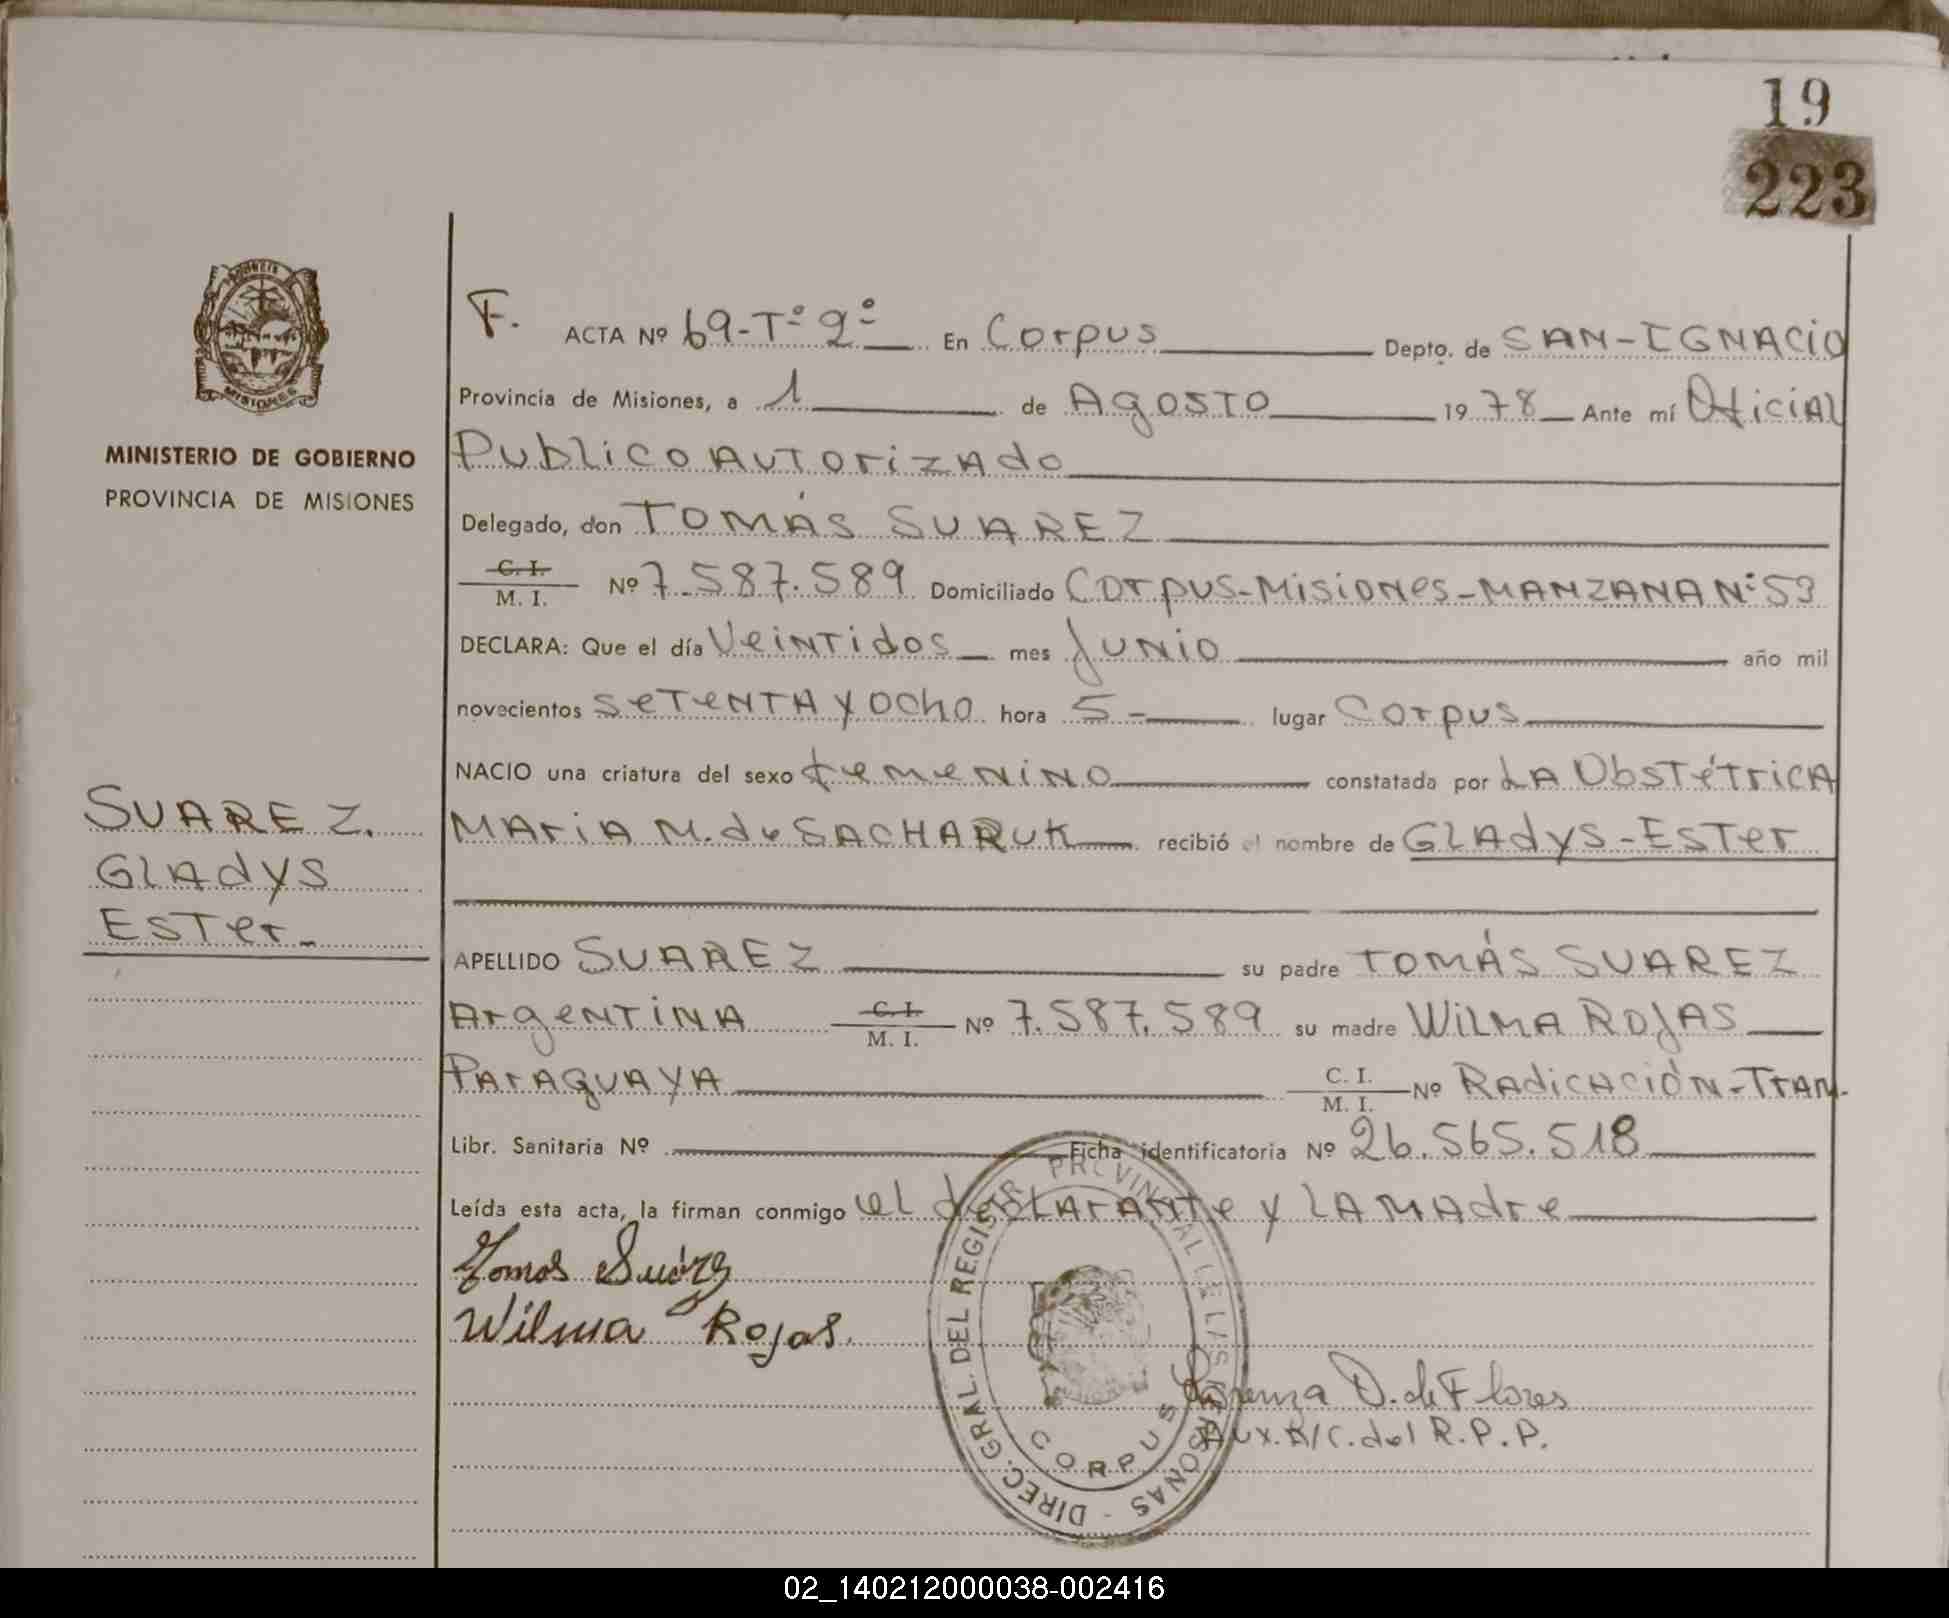 19
223
F. ACTA Nº 69-Tº 2º En Corpus Depto. de SAN-IGNACIO
Provincia de Misiones, a 1 de Agosto 1978 Ante mí Oficial
MINISTERIO DE GOBIERNO
PROVINCIA DE MISIONES
Publico Autorizado
Delegado, don TOMÁS SUAREZ
C. I.
M. I. Nº 7.587.589 Domiciliado Corpus-Misiones-MANZANA Nº 53
DECLARA: Que el día Veintidos mes Junio año mil
novecientos setenta y ocho hora 5- lugar Corpus
NACIO una criatura del sexo femenino constatada por LA Obstétrica
MARIA M. de SACHARUK recibió el nombre de GLAdys-ESTer
SUAREZ.
GLAdys
ESTer-
APELLIDO SUAREZ su padre TOMÁS SUAREZ
Argentina C. I.
M. I. Nº 7.587.589 su madre WILMA ROJAS
PARAGUAYA C. I.
M. I. Nº Radicación-Tram.
Libr. Sanitaria Nº Ficha identificatoria Nº 26.565.518
Leída esta acta, la firman conmigo el declarante y LA Madre
Tomas Suárez
Wilma Rojas.
DIREC. GRAL. DEL REGISTR PROVINCIAL DE LAS PERSONAS -
CORPUS
Lorenza D. de Flores
Aux. A/C. del R.P.P.
02_140212000038-002416